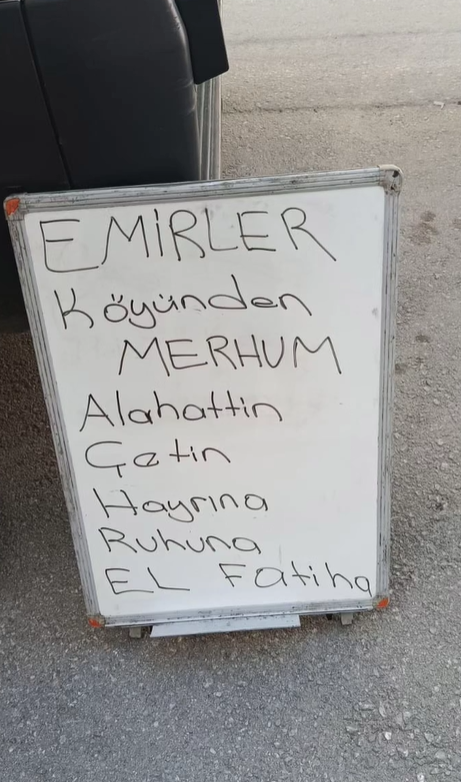 EMİRLER
Köyünden
MERHUM
Alahattin
Çetin
Hayrına
Ruhuna
EL Fatiha